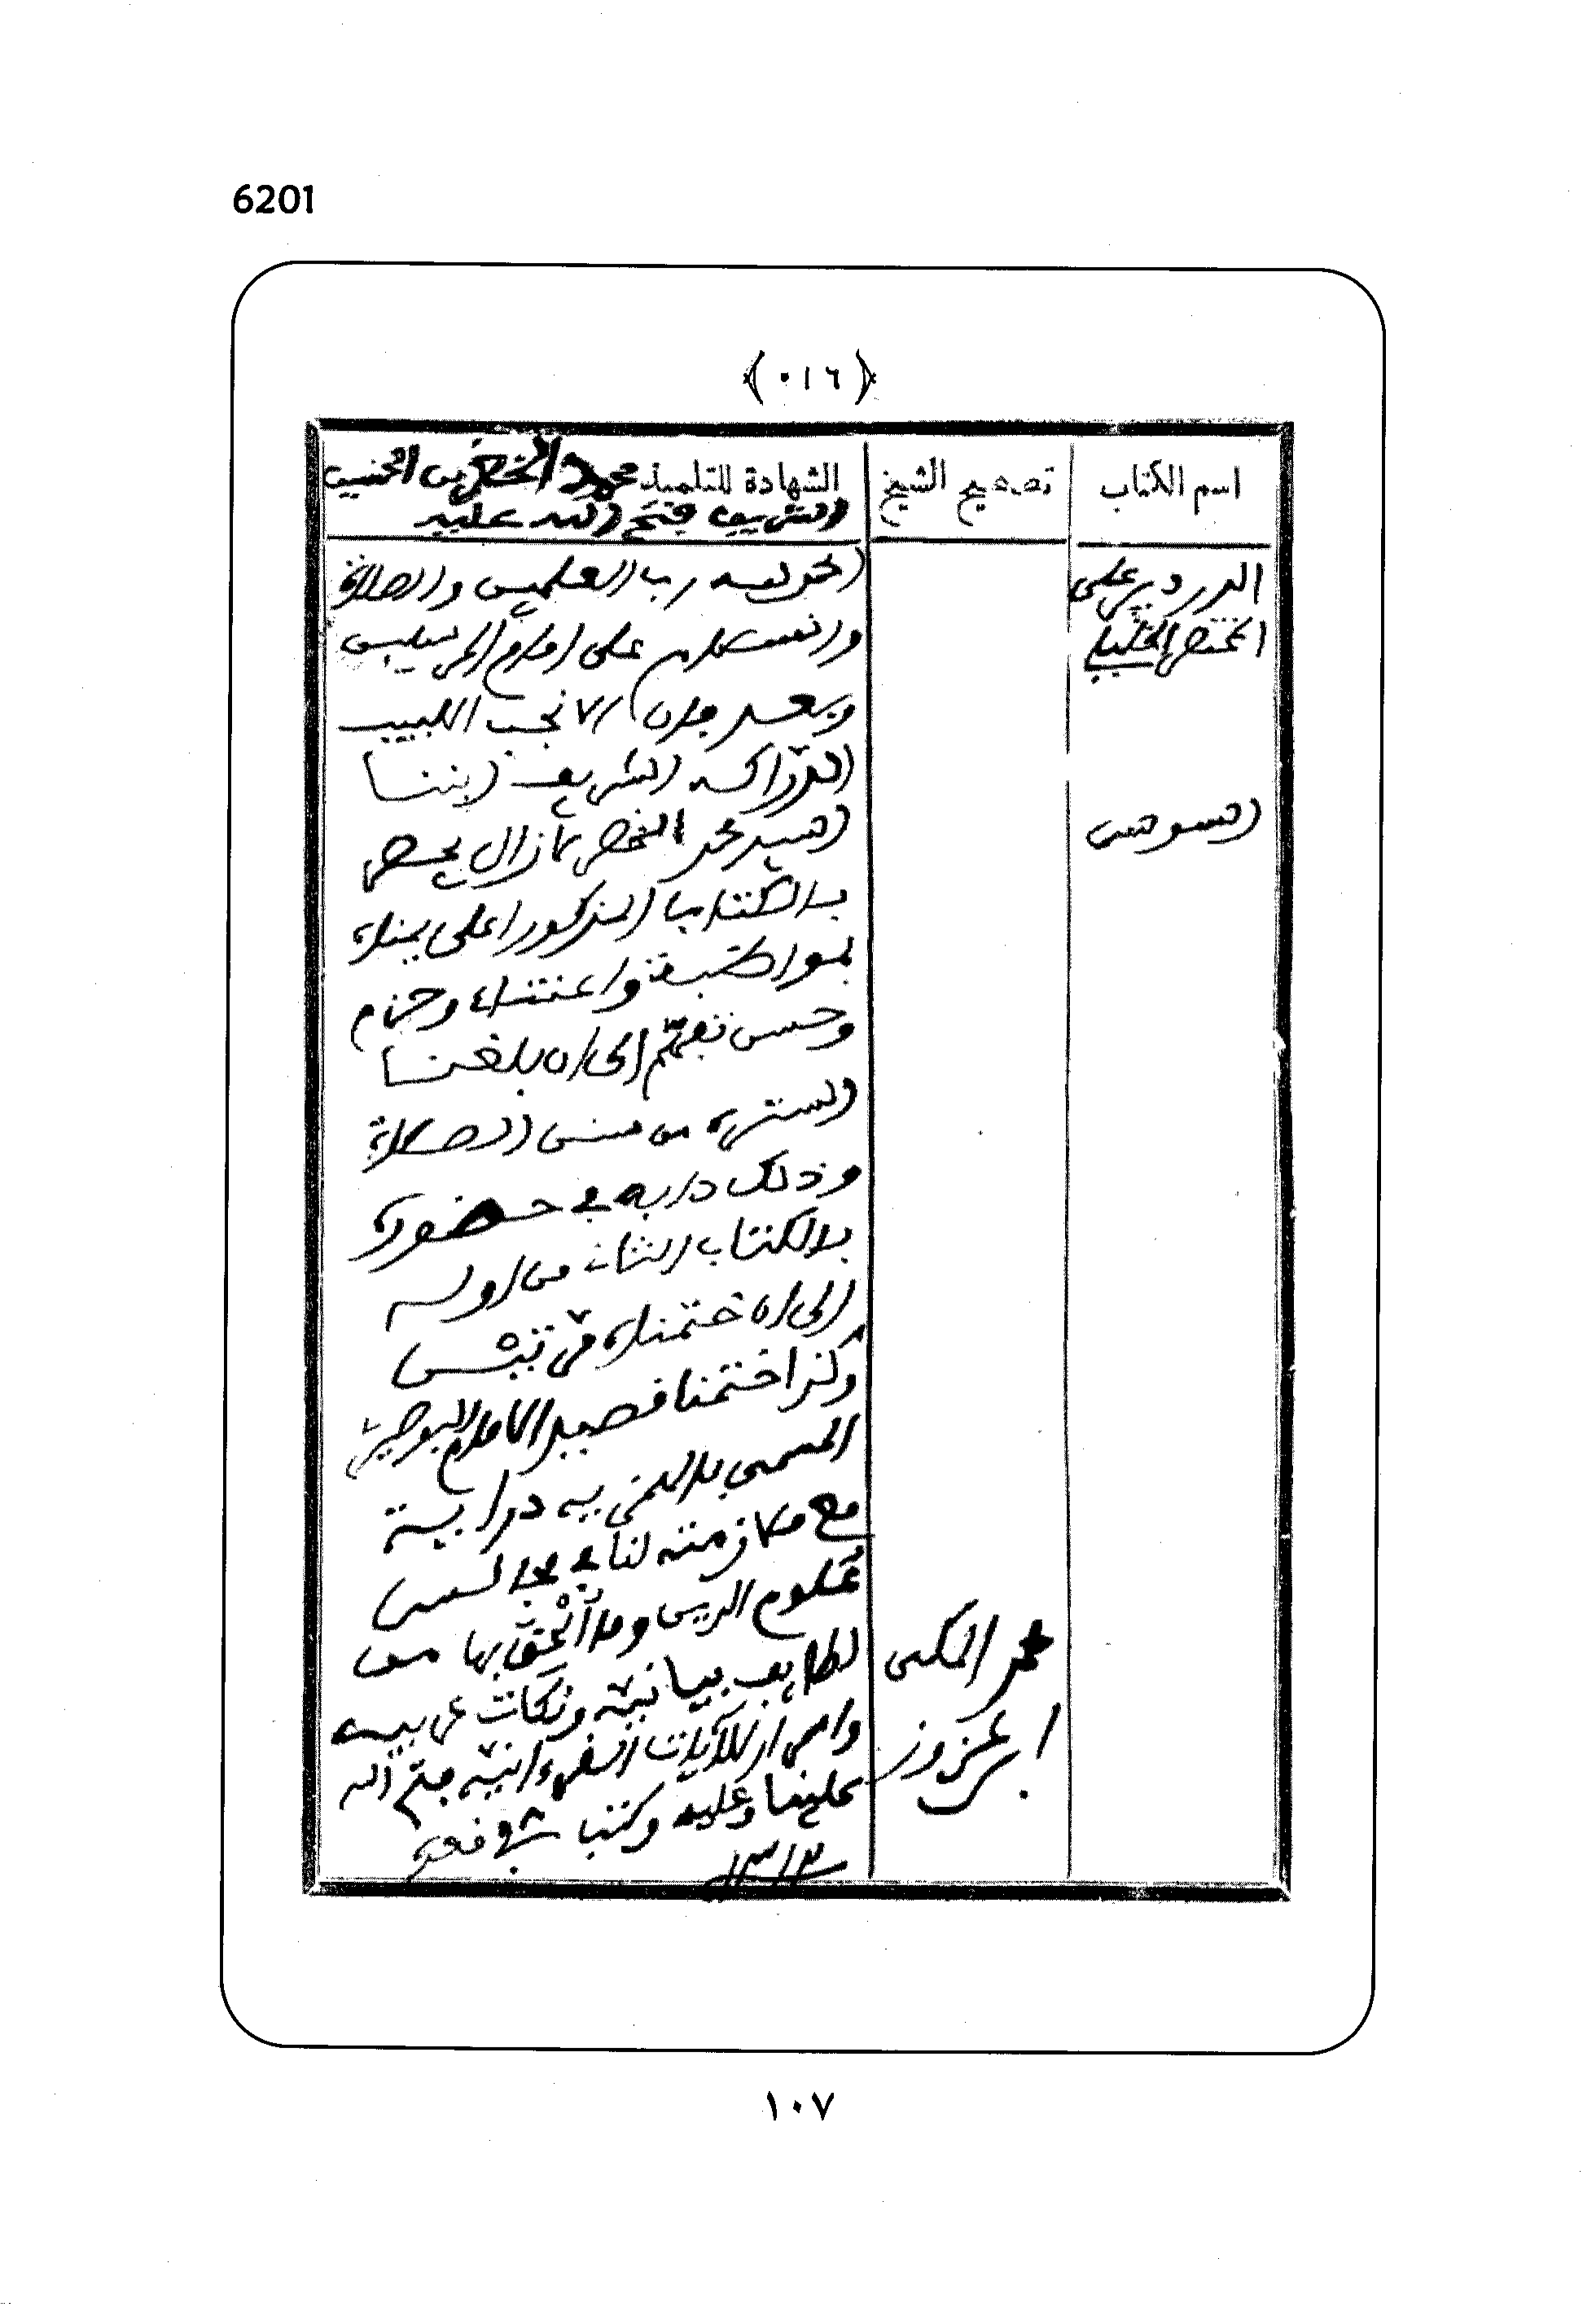 6201
﴿٠١٦﴾
اسم الكتاب
تصحيح الشيخ
الشهادة للتلميذ محمد الخضر بن الحسين
الشريف فتح الله عليه
الدردير على
المختصر الخليلي
السنوسي
الحمد لله رب العلمين والصلاة
والسلام على إمام المرسلين
وبعد فإن الأنجب اللبيب
الدراكه الشريف ابننا
السيد محمد الخضر ما زال يحضر
بالكتاب المذكور أعلى يمناه
بمواظبة واعتناء وحزم
وحسن تفهم إلى أن بلغنا
السترة من سنن الصلاة
وذلك دأبه في حضوره
بالكتاب الثاني من أوله
إلى أن ختمناه
وكذا ختمنا قصيد الإمام البوصيري
المسمى بالهمزية دراية
مع ملازمته لنا في مجالس
علوم الدين وما ألحق بها من
لطايف بيانية ونكات عربية
للآيات القرءانية فتح الله
علينا وعليه وكتب في قعدة
١٣١٢
محمد المكي
ابن عزوز
١٠٧